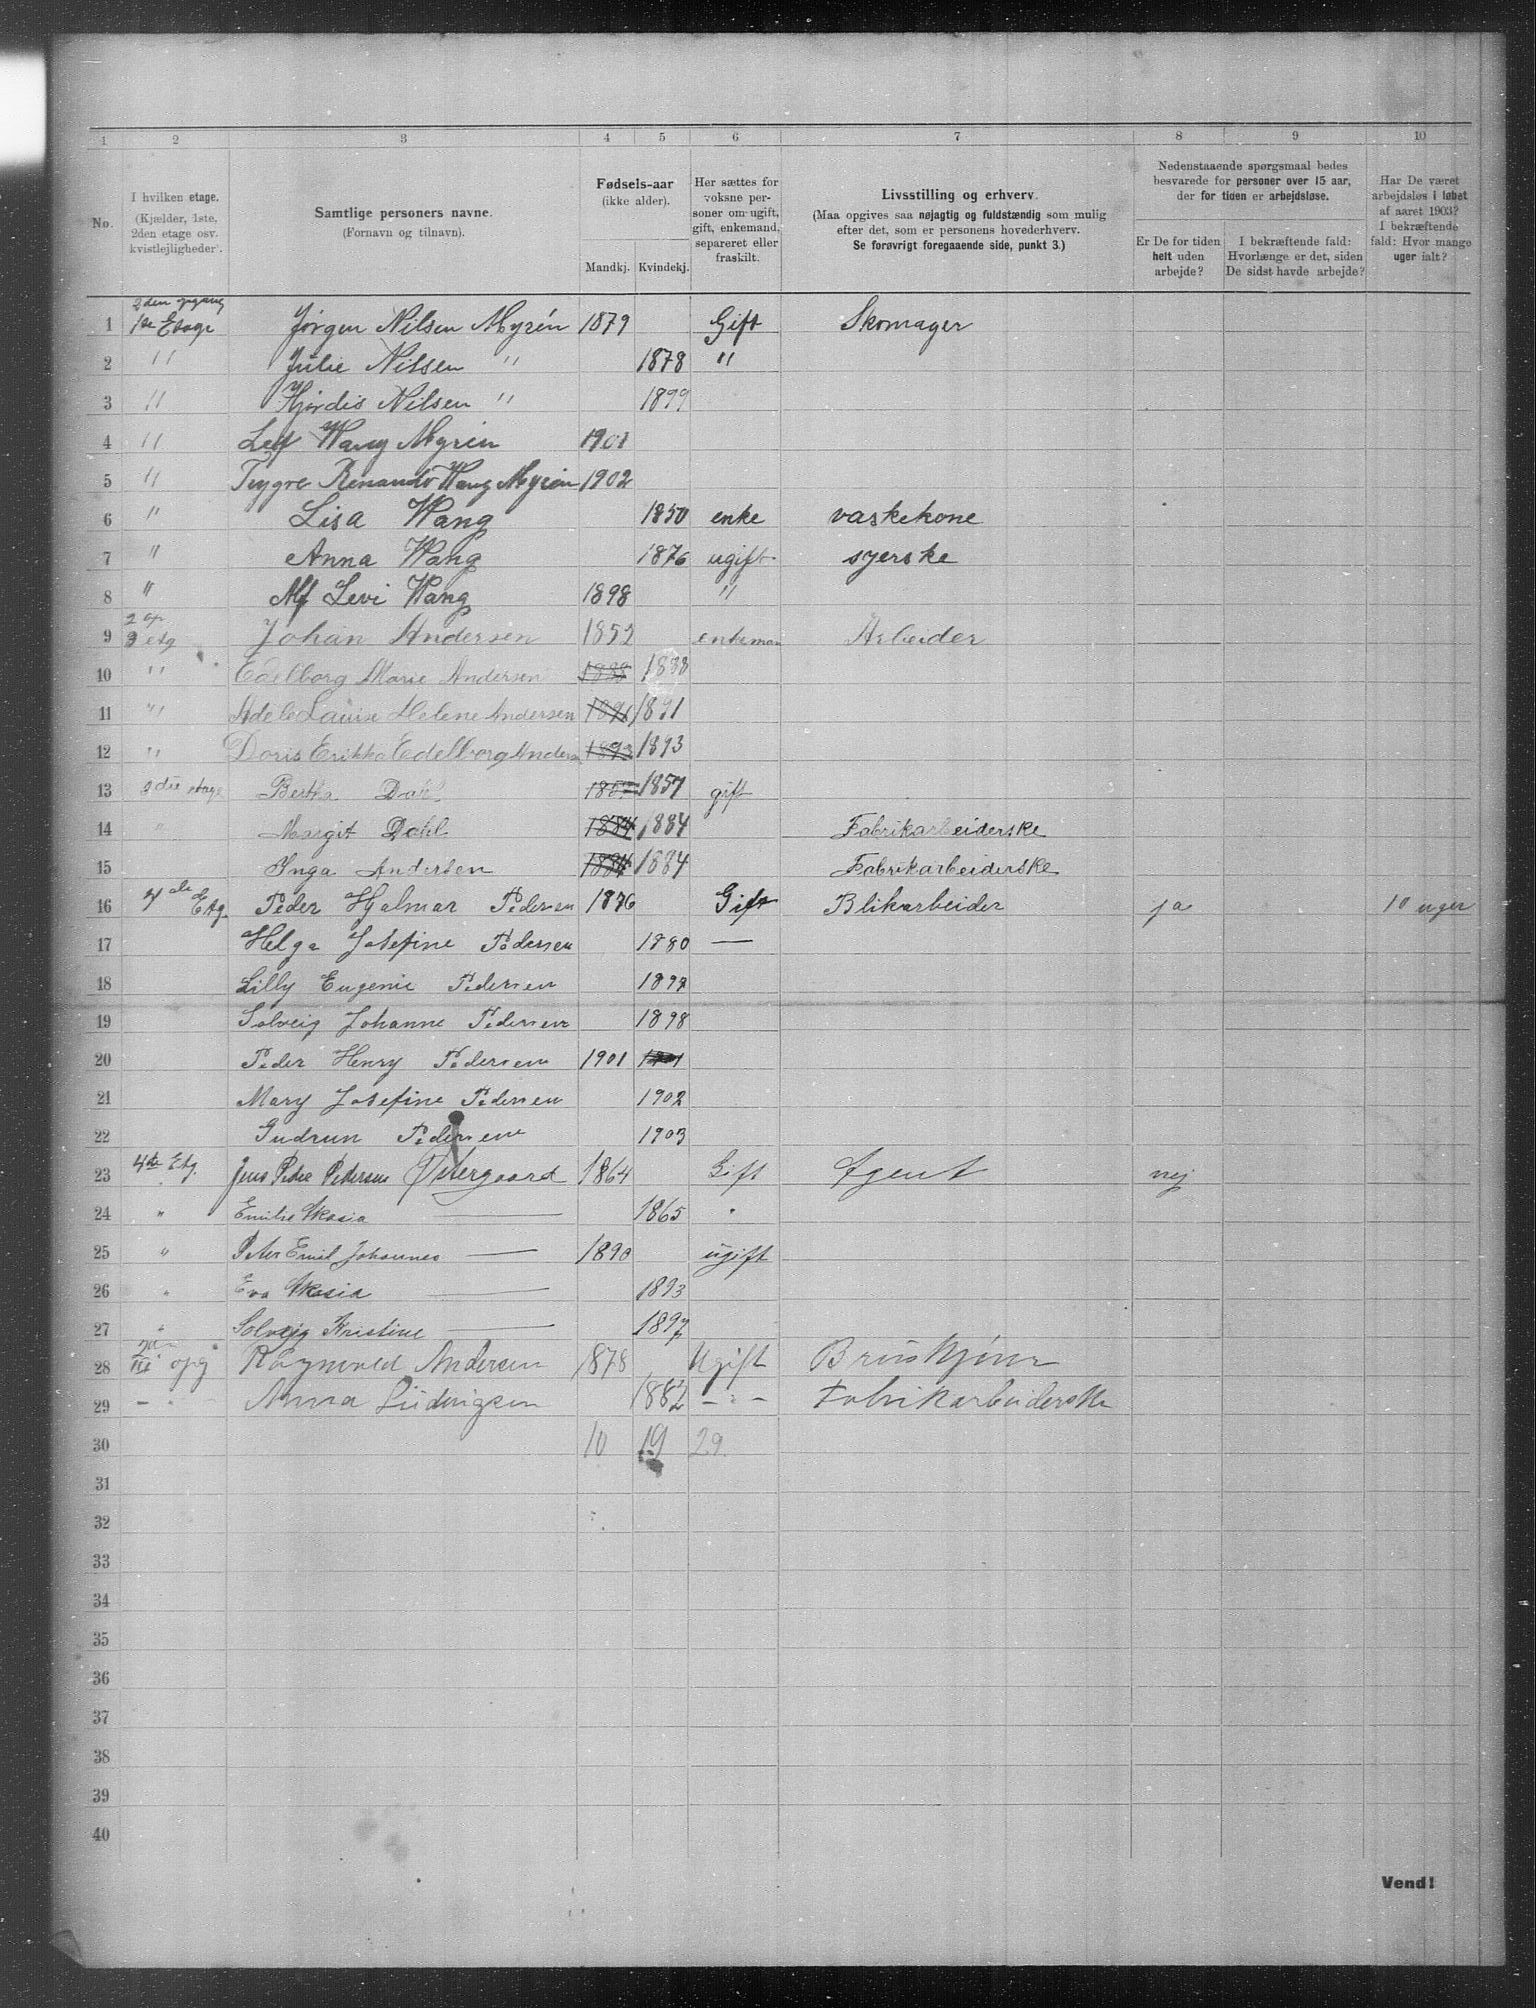 1 2 3 4 5 6 7 8 9 10
No.
I hvilken etage.
(Kjælder, 1ste,
2den etage osv.
kvistlejligheder).
Samtlige personers navne.
(Fornavn og tilnavn).
Fødsels-aar
(ikke alder).
Mandkj. Kvindekj.
Her sættes for
voksne per-
soner om ugift,
gift, enkemand,
separeret eller
fraskilt.
Livsstilling og erhverv.
(Maa opgives saa nøjagtig og fuldstændig som mulig
efter det, som er personens hovederhverv.
Se forøvrigt foregaaende side, punkt 3.)
Nedenstaaende spørgsmaal bedes
besvarede for personer over 15 aar,
der for tiden er arbejdsløse.
Er De for tiden
helt uden
arbejde?
I bekræftende fald:
Hvorlænge er det, siden
De sidst havde arbejde?
Har De været
arbejdsløs i løbet
af aaret 1903?
I bekræftende
fald: Hvor mange
uger ialt?
2den opgang
1 1ste Etage Jørgen Nilsen Myrén 1879 Gift Skomager
2 " Julie Nilsen " 1878 "
3 " Hjørdis Nilsen " 1899
4 " Leif Wang Myrén 1901
5 " Trygve Renando Wang Myrén 1902
6 " Lisa Wang 1850 enke vaskekone
7 " Anna Wang 1876 ugift syerske
8 " Alf Levi Wang 1898 "
2 op
9 3 etg Johan Andersen 1852 enkeman Arbeider
10 " Edelborg Marie Andersen 1888 1888
11 " Adele Lauise Helene Andersen 1891 1891
12 " Doris Erikka Edelborg Andersen 1893 1893
13 3die etage Bertha Dahl 1857 1857 gift
14 " Margit Dahl 1884 1884 Fabrikarbeiderske
15 Inga Andersen 1884 1884 Fabrikarbeiderske
16 4de Etg. Peder Hjalmar Pedersen 1876 Gift Blikarbeider ja 10 uger
17 Helga Josefine Pedersen 1880 —
18 Lilly Eugenie Pedersen 1897
19 Solveig Johanne Pedersen 1898
20 Peder Henry Pedersen 1901 1901
21 Mary Josefine Pedersen 1902
22 Gudrun Pedersen 1903
23 4de Etg. Jens Peder Pedersen Østergaard 1864 Gift Agent nej
24 " Emilie Akasia — 1865 "
25 " Peter Emil Johannes — 1890 ugift
26 " Eva Akasia — 1893
27 " Solvejg Kristine — 1897
28 III opg Ragnvald Andersen 1878 Ugift Bruskjører
29 – " Anna Ludvigsen 1882 – " – Fabrikarbeiderske
30 10 19 29.
31
32
33
34
35
36
37
38
39
40
Vend!